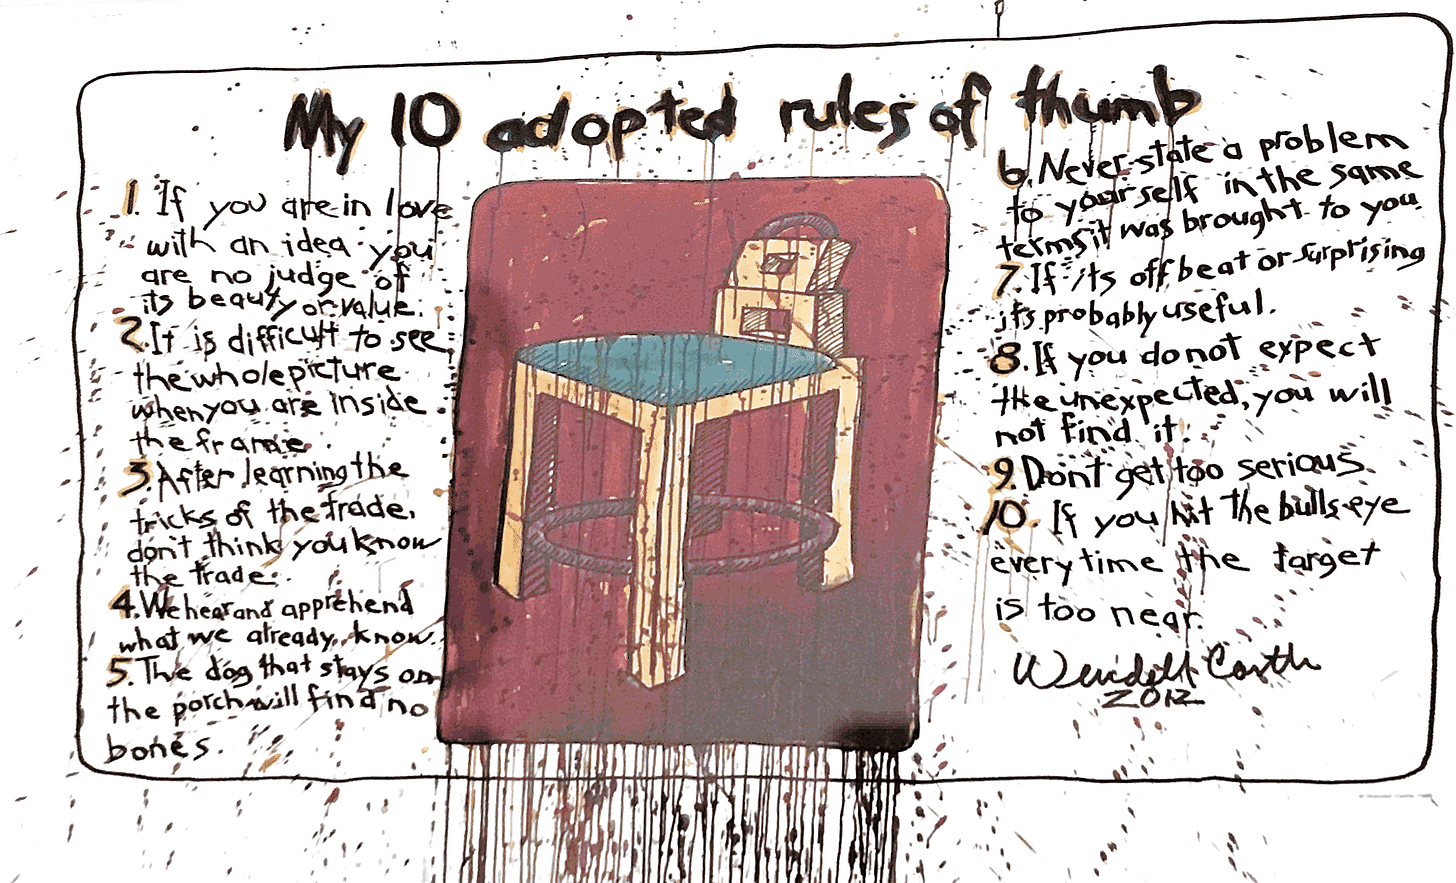 My 10 adopted rules of thumb
1. If you are in love
with an idea you
are no judge of
its beauty or value.
2. It is difficult to see
the whole picture
when you are inside
the frame.
3. After learning the
tricks of the trade,
don't think you know
the trade.
4. We hear and apprehend
what we already know.
5. The dog that stays on
the porch will find no
bones.
6. Never state a problem
to yourself in the same
terms it was brought to you
7. If its offbeat or surprising
its probably useful.
8. If you do not expect
the unexpected, you will
not find it.
9. Dont get too serious.
10. If you hit the bullseye
every time the target
is too near.
Wendell Castle
2012